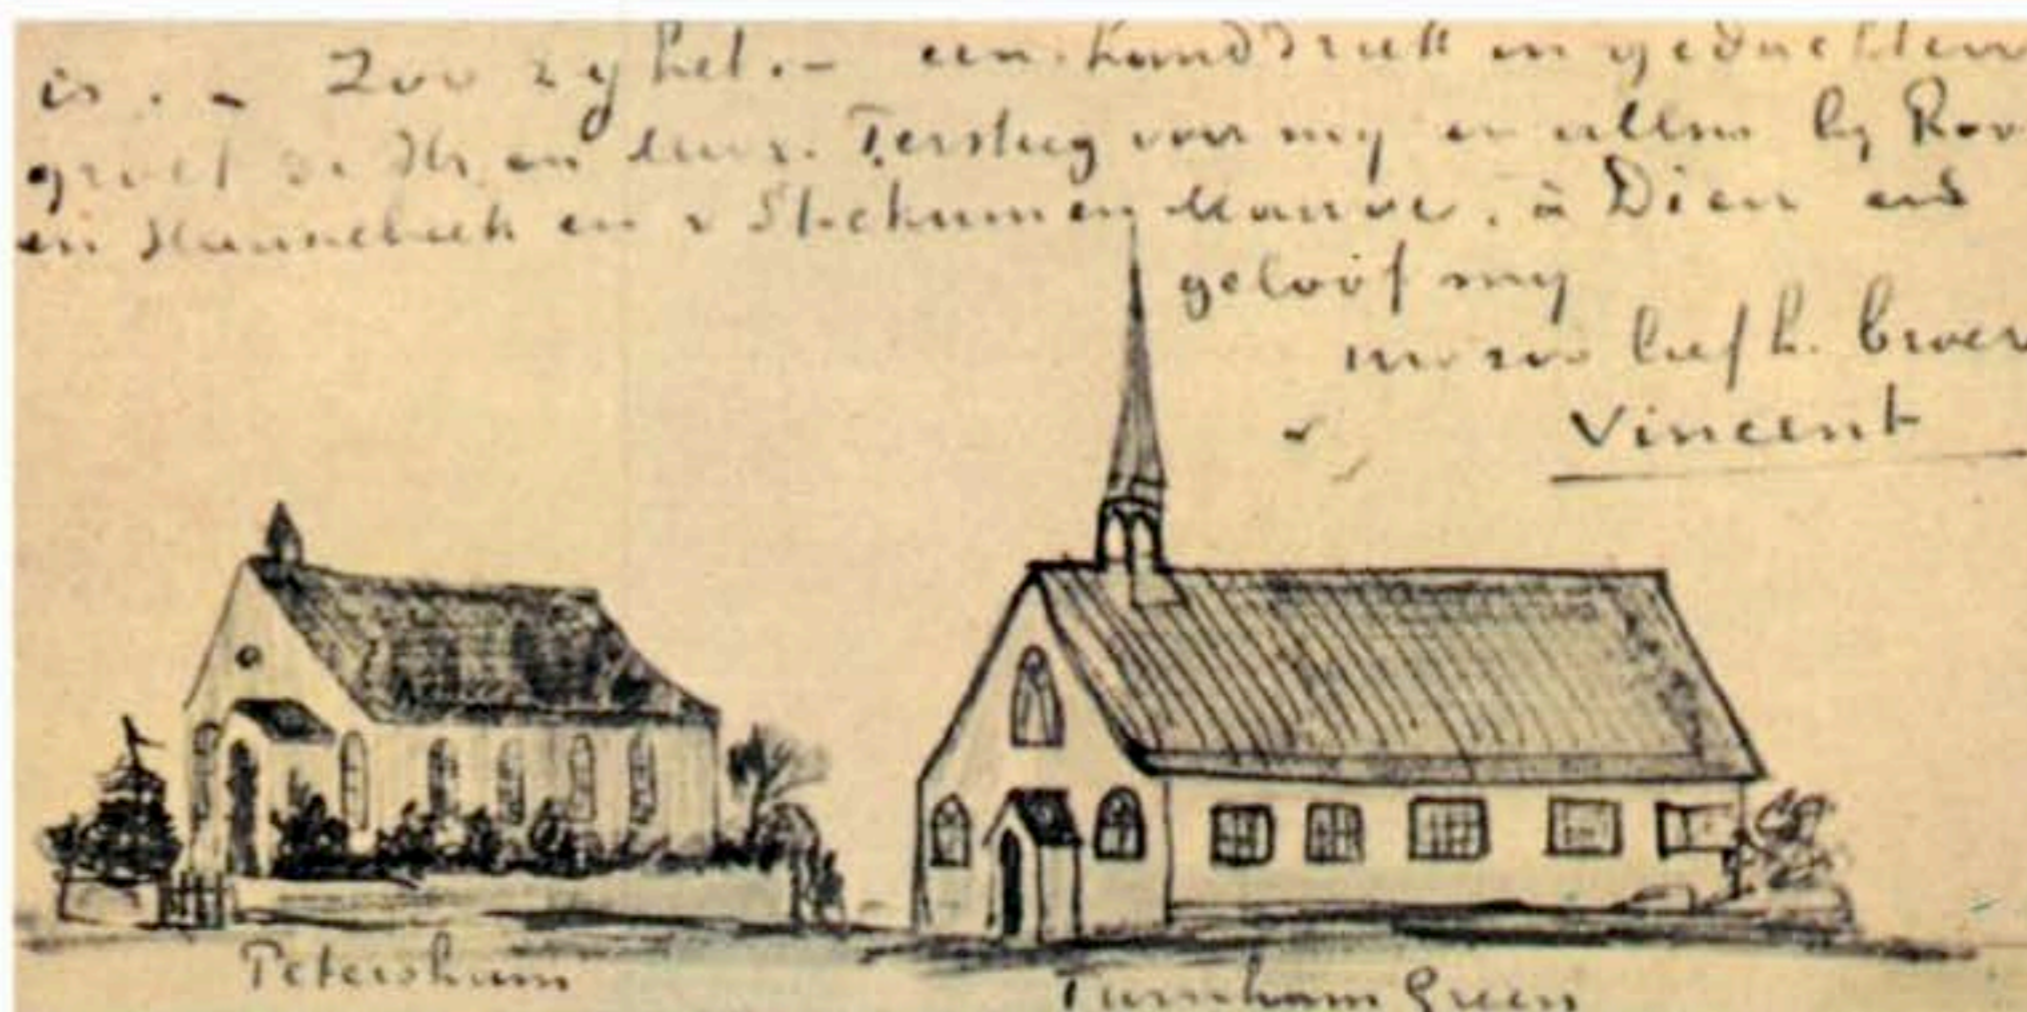 is. – Zoo zy het. – een handdruk in gedachten
groet de Hr en Mevr. Tersteeg voor my en allen by Roo
en Haanebeek en v Stockum en Mauve. à Dieu en
geloof my
uw zoo liefh. broer
Vincent
Petersham
Turnham Green